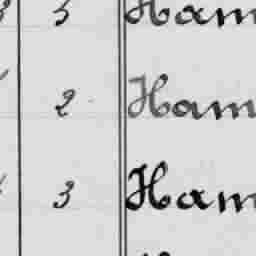 5 Ham
2 Ham
3 Ham